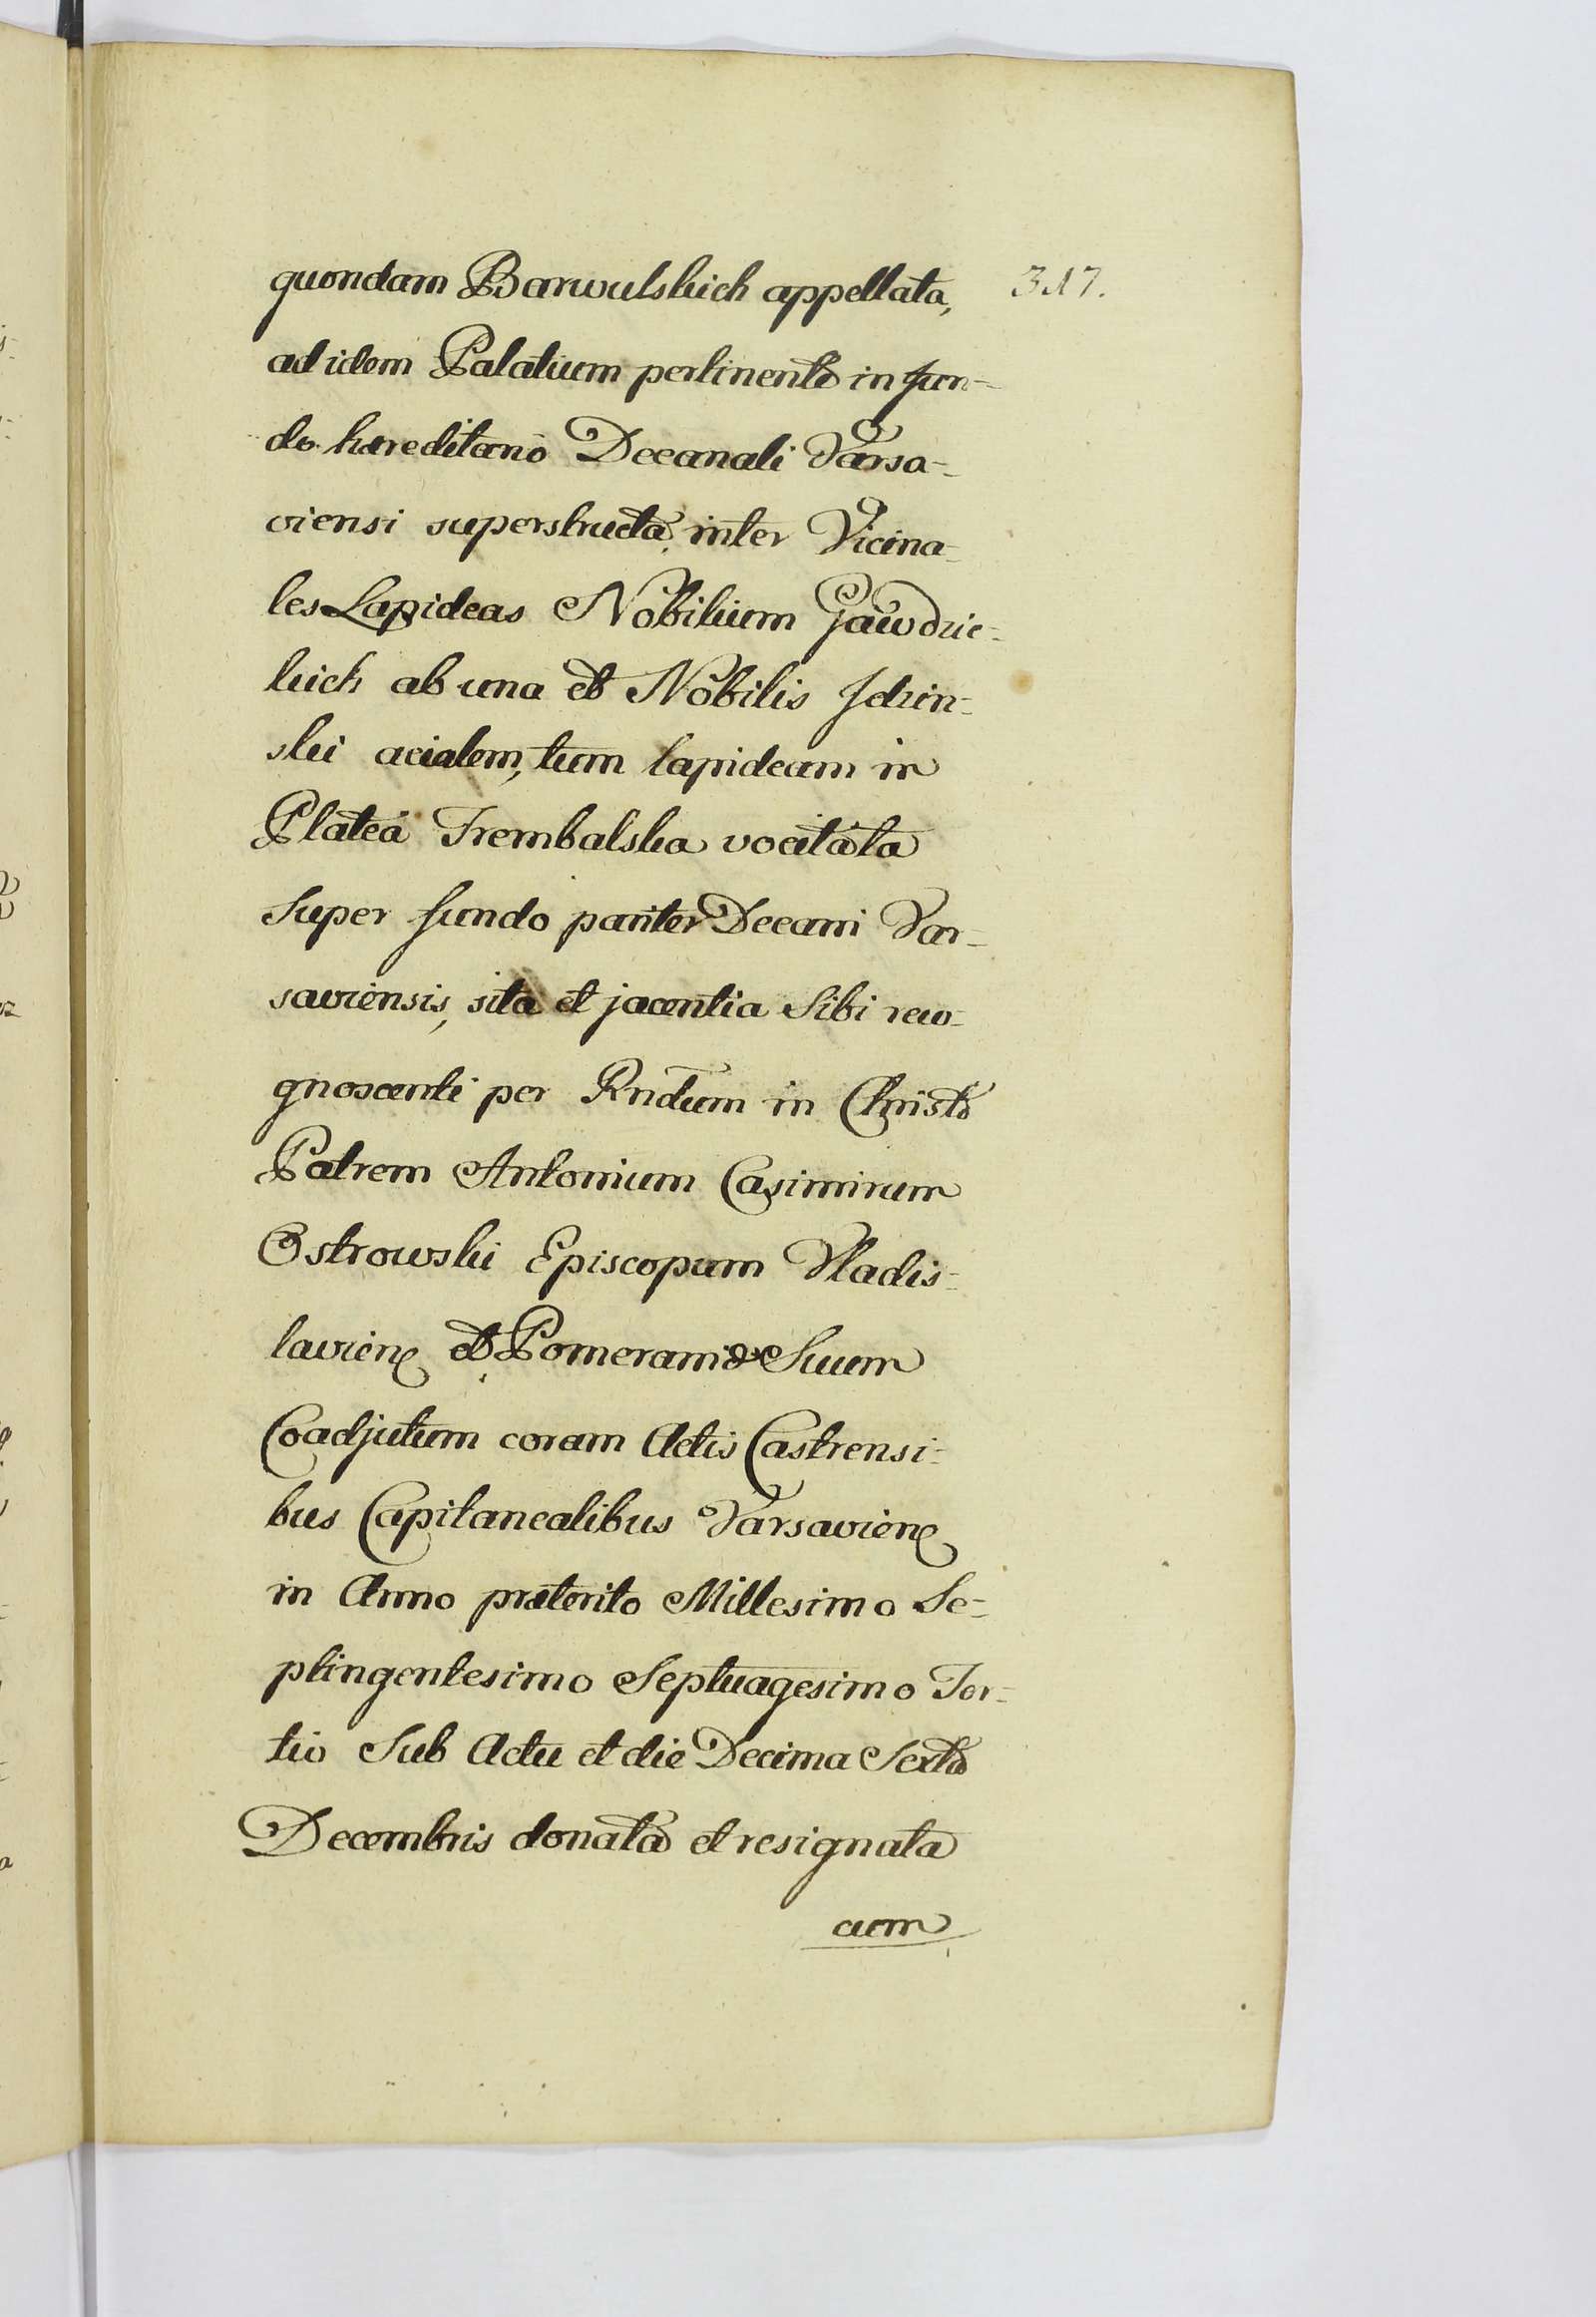 quondam Barwulskich appellata, 317.
ad idem Palatium pertinente in fun-
do hæreditario Decanali Varsa-
viensi superstructa, inter Vicina-
les Lapideas Nobilium Gawdzic-
kich ab una et Nobilis Jdzin-
ski acialem, tum lapideam in
Platea Trembalska vocitata
Super fundo pariter Decani Var-
saviensis, sita et jacentia Sibi reco-
gnoscenti per Rndum in Christo
Patrem Antonium Casimirum
Ostrowski Episcopum Vladis-
lavien et Pomeraniæ Suum
Coadjutum coram Actis Castrensi-
bus Capitanealibus Varsavien
in Anno præterito Millesimo Se-
ptingentesimo Septuagesimo Ter-
tio Sub Actu et die Decima Sexta
Decembris donata et resignata
cum